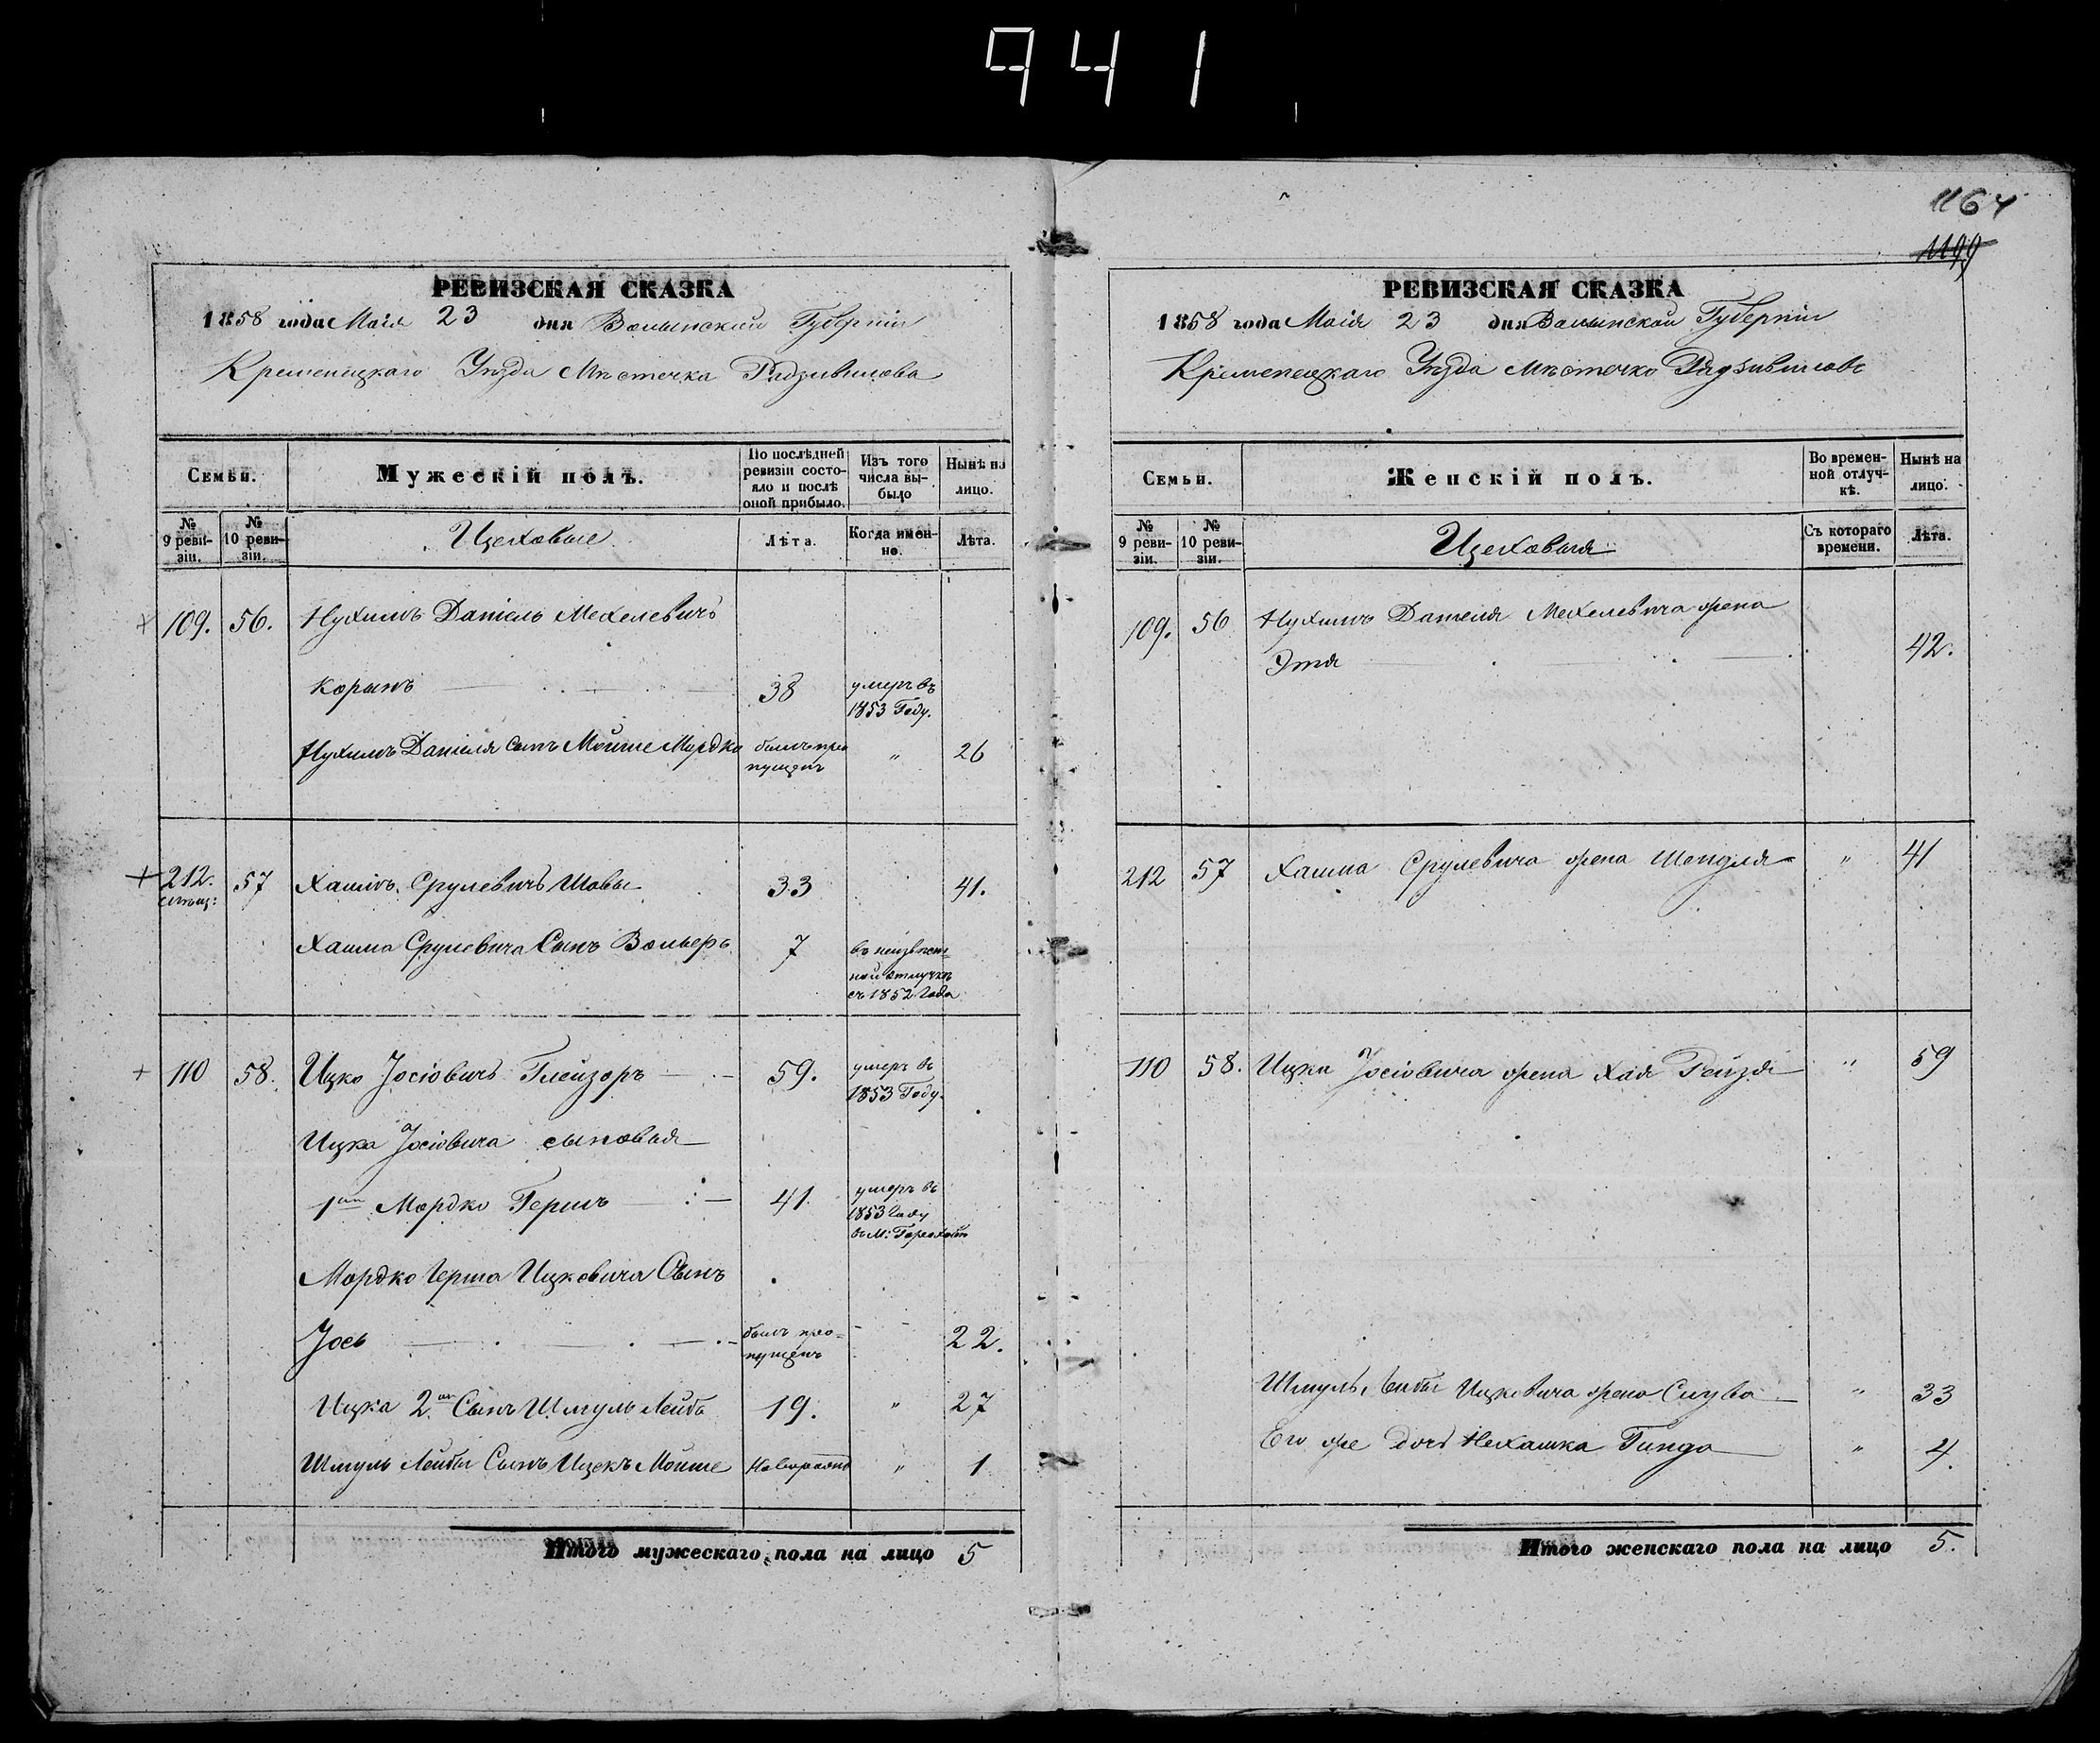 941
1164
1199
РЕВИЗСКАЯ СКАЗКА
1858 года Маія 23 дня Волынской Губерніи
Кременецкаго Уѣзда Мѣстечка Радзивилова
Семьи.
Мужескій полъ.
По послѣдней ревизіи состояло и послѣ оной прибыло.
Изъ того числа выбыло
Нынѣ на лицо.
№ 9 ревизіи.
№ 10 ревизіи.
Цеховые
Лѣта.
Когда именно.
Лѣта.
109. 56. Нухимъ Даніель Мехелевичъ
Корынъ 38 умеръ въ 1853 Году.
Нухимъ Даніеля сынъ Мойше Мордко былъ пропущенъ „ 26
212. 57 Хаимъ Срулевичъ 33 41.
Хаима Срулевича Сынъ Вольеръ 7 въ неизвѣстной отлучкѣ съ 1852 Года
110 58. Ицко Іосіовичъ Глейзоръ 59. умеръ въ 1853 Году.
Ицка Іосіовича сыновья
1й Мордко Гершъ 41. умеръ въ 1853 Году въ М:
Мордко Герша Ицковича Сынъ
Іось былъ пропущенъ 22.
Ицка 2й Сынъ Шмуль Лейба 19. „ 27
Шмуль Лейбы Сынъ Ицекъ Мойше Новорожд „ 1
Итого мужескаго пола на лицо 5
РЕВИЗСКАЯ СКАЗКА
1858 года Маія 23 дня Волынской Губерніи
Кременецкаго Уѣзда Мѣстечко Радзивиловъ
Семьи.
Женскій полъ.
Во временной отлучкѣ.
Нынѣ на лицо.
№ 9 ревизіи.
№ 10 ревизіи.
Цеховыя
Съ котораго времени.
Лѣта.
109. 56 Нухимъ Даніеля Мехелевича жена
Этя 42.
212 57 Хаима Срулевича жена Шендля „ 41
110 58. Ицка Іосіовича жена Хая Рейзя „ 59
Шмуль Лейбы Ицковича жена Слува „ 33
Его же дочь Нехамка Гинда „ 4.
Итого женскаго пола на лицо 5.